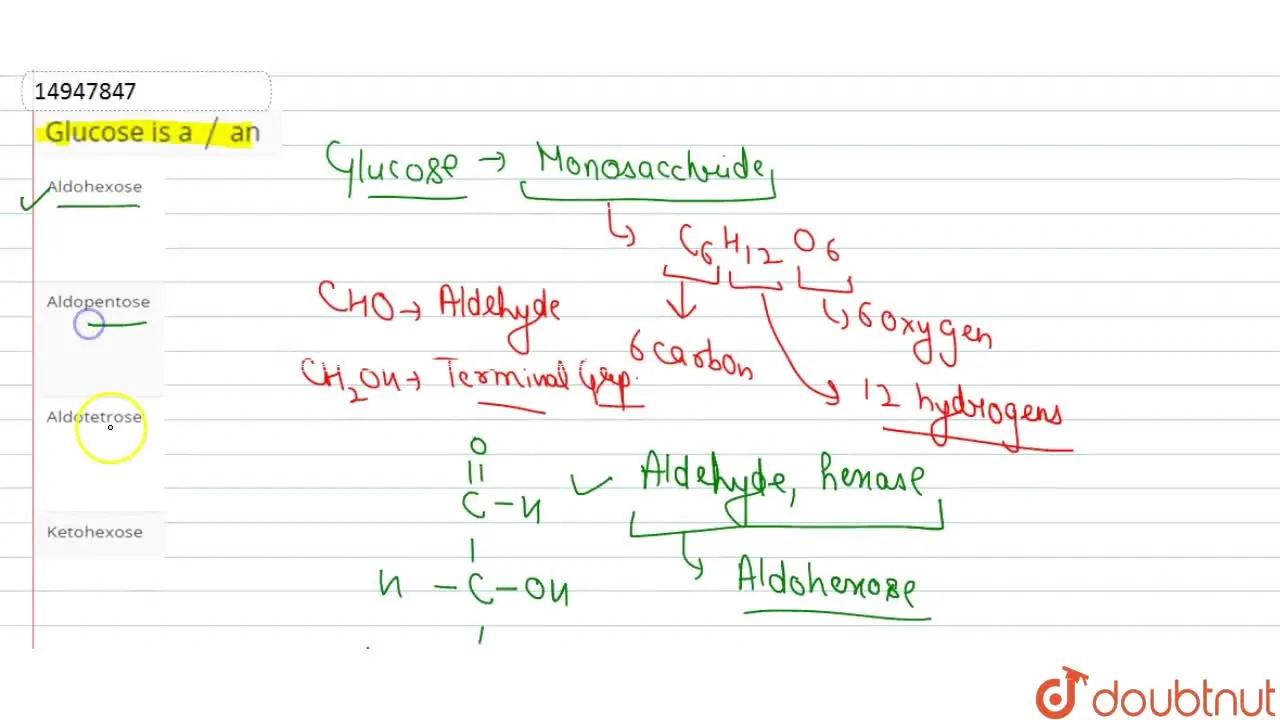 14947847
Glucose is a / an
Aldohexose
Aldopentose
Aldotetrose
Ketohexose
Glucose → Monosacchride
C6 H12 O6
CHO → Aldehyde
6 carbon
6 oxygen
12 hydrogens
CH2OH → Terminal Grp.
O
||
C - H
|
H - C - OH
|
Aldehyde, hexase
Aldohexose
doubtnut